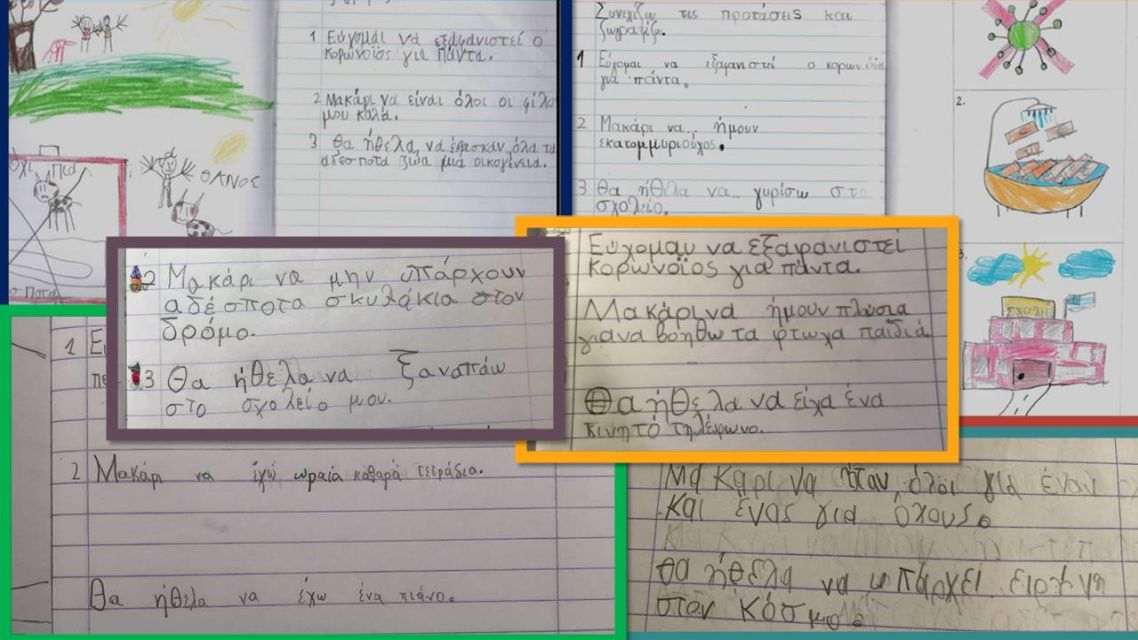 1 Εύχομαι να εξαφανιστεί ο
κορωνοϊός για πάντα.
2 Μακάρι να είναι όλοι οι φίλοι
μου καλά.
3 Θα ήθελα να έβρισκαν όλα τα
αδέσποτα ζώα μια οικογένεια.
ΘΑΝΟΣ
Συνεχίζω τις προτάσεις και
ζωγραφίζω.
1 Εύχομαι να εξαφανιστεί ο κορωνοϊός
για πάντα.
2 Μακάρι να ήμουν
εκατομμυριούχος.
3 Θα ήθελα να γυρίσω στο
σχολείο.
2.
3.
ΣΧΟΛΕΙΟ
2 Μακάρι να μην υπάρχουν
αδέσποτα σκυλάκια στον
δρόμο.
3 Θα ήθελα να ξαναπάω
στο σχολείο μου.
Εύχομαι να εξαφανιστεί
κορωνοϊος για πάντα.
Μακάρινα ήμουν πλώσια
γιανα βοηθω τα φτωχα παιδιά
Θα ήθελα να είχα ένα
κινητό τηλέφωνο.
1
2 Μακάρι να έχω ωραία καθαρά τετράδια.
Θα ήθελα να έχω ένα πιάνο.
Μακαρι να ήταν όλοι για έναν
και ένας για όλους.
Θα ήθελα να υπάρχει ειρήνη
στον κόσμο.